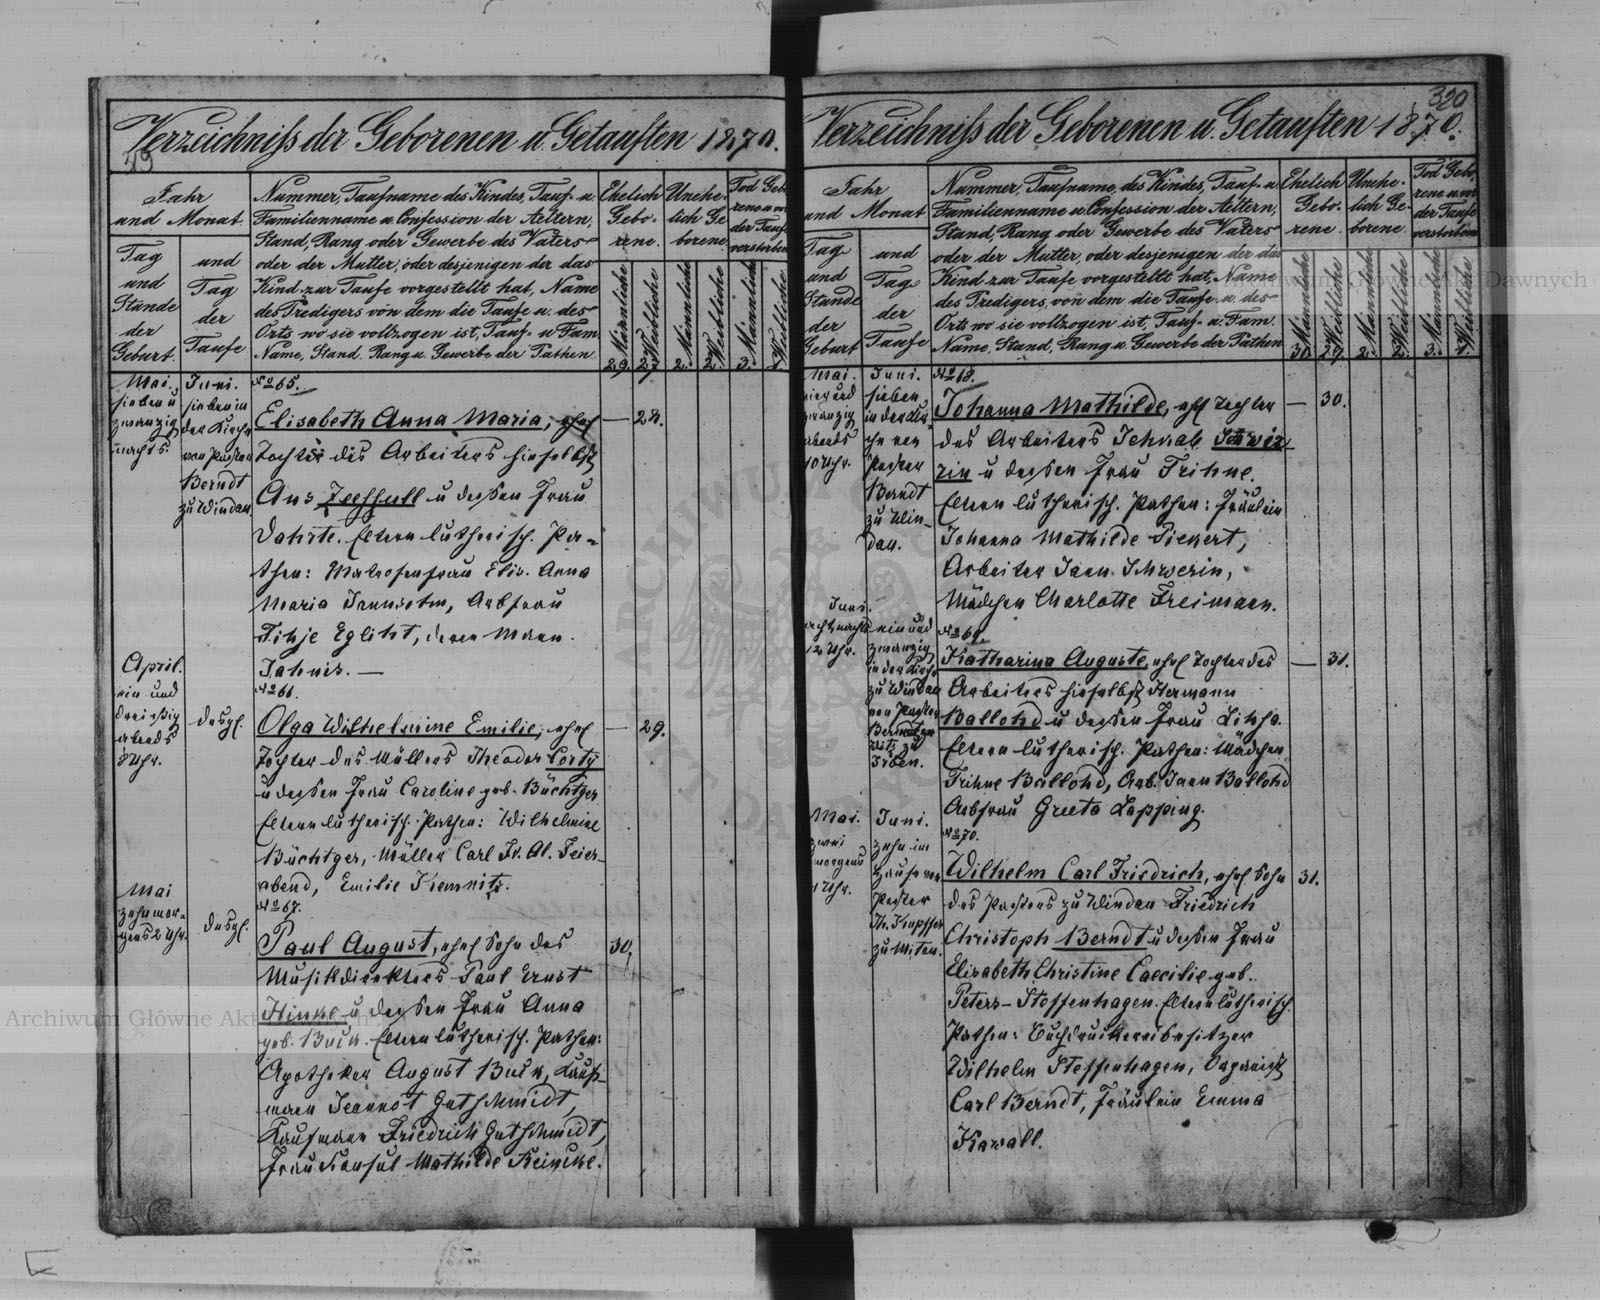 Verzeichniß der Geborenen u. Getauften 1870.
49
Jahr
und Monat
Tag
und
Stunde
der
Geburt.
und
Tag
der
Taufe
Nummer, Taufname des Kindes, Tauf- u.
Familienname u. Confession der Aeltern,
Stand, Rang oder Gewerbe des Vaters
oder der Mutter, oder desjenigen der das
Kind zur Taufe vorgestellt hat, Name
des Predigers von dem die Taufe u. des
Orts wo sie vollzogen ist, Tauf- u. Fam.
Name, Stand, Rang u. Gewerbe der Pathen.
Ehelich
Gebo-
rene.
Unehe-
lich Ge-
borene
Tod Gebo
rene u. vor
der Taufe
verstorben
Männliche
Weibliche
Männliche
Weibliche
Männlich
Weibliche
29. 27. 2. 2. 3. 1.
Mai.
sieben u
zwanzig
nachts.
Juni.
sieben in
der Kirche
von Pastor
Berndt
zu Windau
No 65.
Elisabeth Anna Maria, ehel — 28.
Tochter des Arbeiters hieselbst
Ans u dessen Frau
Dahrte. Eltern lutherisch. Pa-
then: Matrosenfrau Elis. Anna
Maria Jannsohn, Arbfrau
Tihje Egliht, deren Mann
Jahnis. —
April.
ein und
dreissig
abends
8 Uhr.
desgl.
No 66.
Olga Wilhelmine Emilie, ehel — 29.
Tochter des Müllers Theodor Corty
u dessen Frau Caroline geb. Büchtger
Eltern lutherisch. Pathen: Wilhelmine
Büchtger, Müller Carl Fr. Al. Feier-
abend, Emilie Kremnitz.
Mai
zehn mor-
gens 2 Uhr.
desgl.
No 67.
Paul August, ehel Sohn des 30.
Musikdirektors Paul Ernst
Hinke u dessen Frau Anna
geb. Buck. Eltern lutherisch. Pathen:
Apotheker August Buck, Kauf-
mann Jeannot Gutschmidt,
Kaufmann Friedrich Gutschmidt,
Frau Konsul Mathilde Reincke.
320
Verzeichniß der Geborenen u. Getauften 1870.
Jahr
und Monat
Tag
und
Stunde
der
Geburt
und
Tag
der
Taufe
Nummer, Taufname, des Kindes, Tauf- u.
Familienname u. Confession der Aeltern,
Stand, Rang oder Gewerbe des Vaters
oder der Mutter, oder desjenigen der das
Kind zur Taufe vorgestellt hat, Name
des Predigers, von dem die Taufe u. des
Orts wo sie vollzogen ist, Tauf- u. Fam.
Name, Stand, Rang u. Gewerbe der Pathen
Ehelich
Gebo-
rene.
Unehe-
lich Ge-
borene
Tod Gebo
rene u. vor
der Taufe
verstorben
Männliche
Weibliche
Männliche
Weibliche
Männlich
Weibliche
30. 29. 2. 2. 3. 1.
Mai.
vier und
zwanzig
abends
10 Uhr.
Juni.
sieben
in der Kir
che von
Pastor
Berndt
zu Win-
dau.
No 68.
Johanna Mathilde, ehel Tochter — 30.
des Arbeiters Jehkab Schwer-
rin u dessen Frau Trihne.
Eltern lutherisch. Pathen: Fräulein
Johanna Mathilde Sievert,
Arbeiter Jann Schwerin,
Mädchen Charlotte Freimann.
Juni.
acht nachts
12 Uhr.
ein und
zwanzig
in der Kirche
zu Windau
von Pastor
zu
Irben.
No 69.
Katharina Auguste, ehel Tochter des — 31.
Arbeiters hieselbst Hermann
Ballohd u dessen Frau Lihsa.
Eltern lutherisch. Pathen: Mädchen
Trihne Ballohd, Arb. Jann Ballohd
Arbfrau Greeta Lapping.
Mai.
zwei
morgens
1 Uhr.
Juni.
zehn im
Hause von
Pastor
Th. Kupffer
zu Mitau.
No 70.
Wilhelm Carl Friedrich, ehel Sohn 31.
des Pastors zu Windau Friedrich
Christoph Berndt u dessen Frau
Elisabeth Christine Caecilie geb.
Peters-Steffenhagen. Eltern lutherisch.
Pathen: Buchdruckereibesitzer
Wilhelm Steffenhagen, Organist
Carl Berndt, Fräulein Emma
Kawall.
Archiwum Główne Akt Dawnych
Archiwum Główne Akt Dawnych